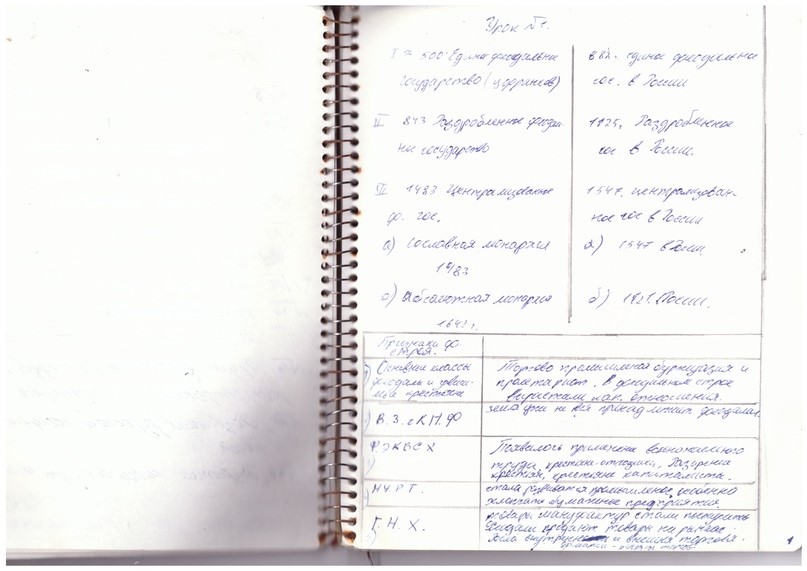 Урок №1.
I ≈ 500 Единое феодальное
государство
II 843 Раздробленное феодаль-
ное государство
III 1483 Централизованное
фо. гос.
а) Сословная монархия
1483
б) Абсолютная монархия
1643 г.
882. единое феодальное
гос. в России
1125, Раздробленное
гос в России.
1547. централизован-
ное гос в России
а) 1547 в России.
б) России.
Признаки фо.
строя.
Основные классы
феодалы и зависи-
мые крестьяне
Торгово промышленная буржуазия и
пролетариат. в феодальном строе
отношения.
В.З. КП. Фо
земля уже не вся принадлежит феодалам
Появилось применение вольнонаемного
труда, крестьяне-отходники, Разорение
крестьян,
Н У Р Т.
стала развиваться промышленное, особенно
хлопчато бумажные предприятия.
Г. Н. Х.
товары мануфактур стали
продают товары на рынках.
и внешняя торговля.
1